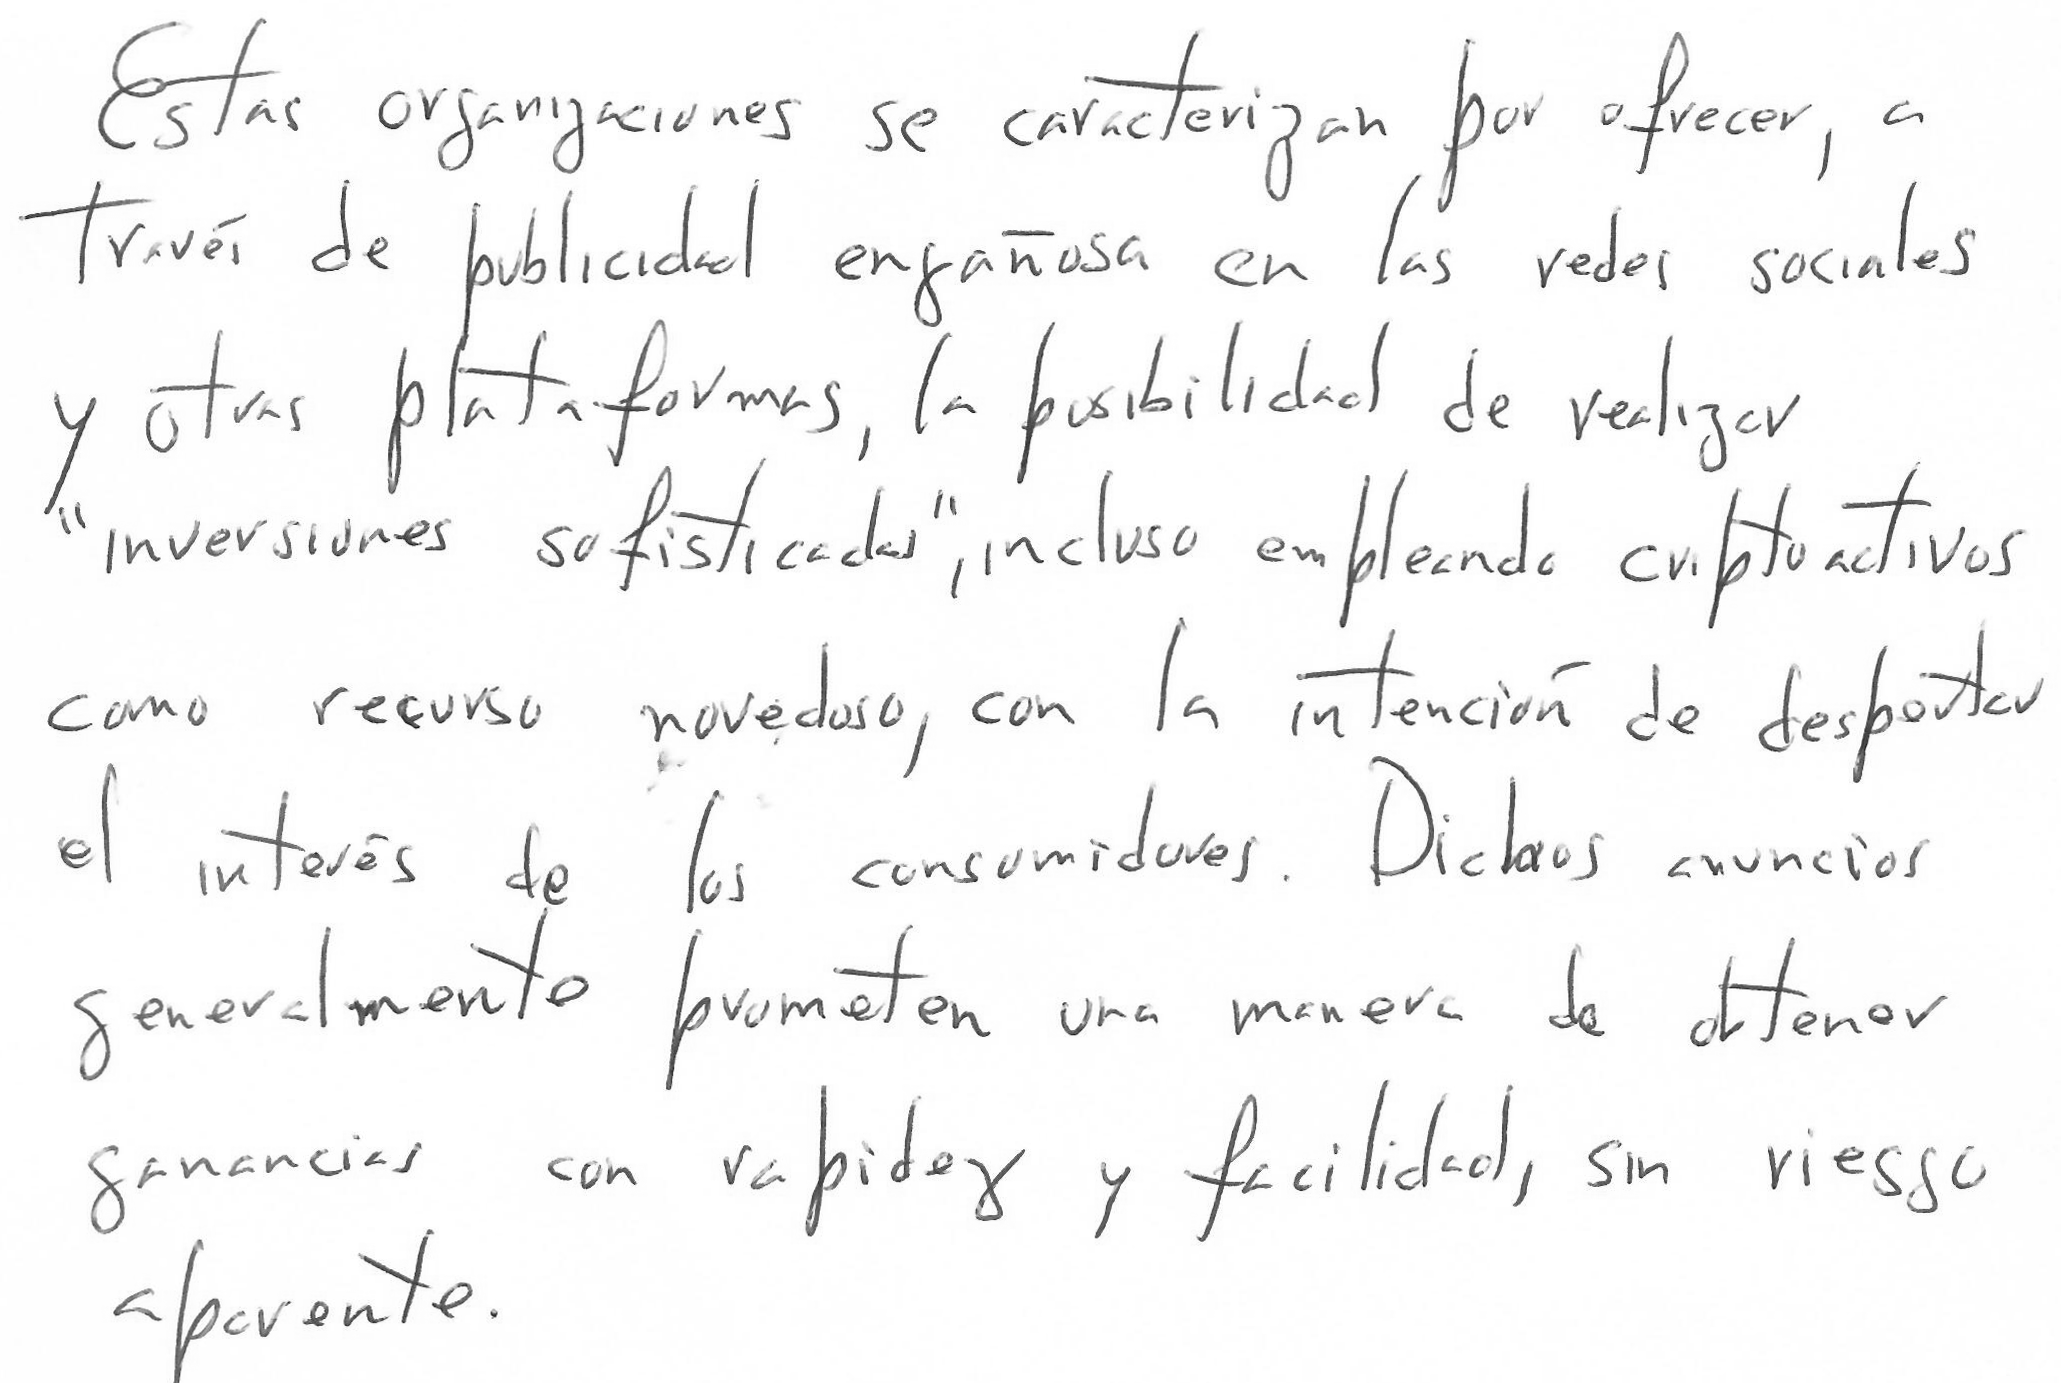 Estas organizaciones se caracterizan por ofrecer, a
través de publicidad engañosa en las redes sociales
y otras plataformas, la posibilidad de realizar
"inversiones sofisticadas", incluso empleando criptoactivos
como recurso novedoso, con la intención de despertar
el interés de los consumidores. Dichos anuncios
generalmente prometen una manera de obtener
ganancias con rapidez y facilidad, sin riesgo
aparente.